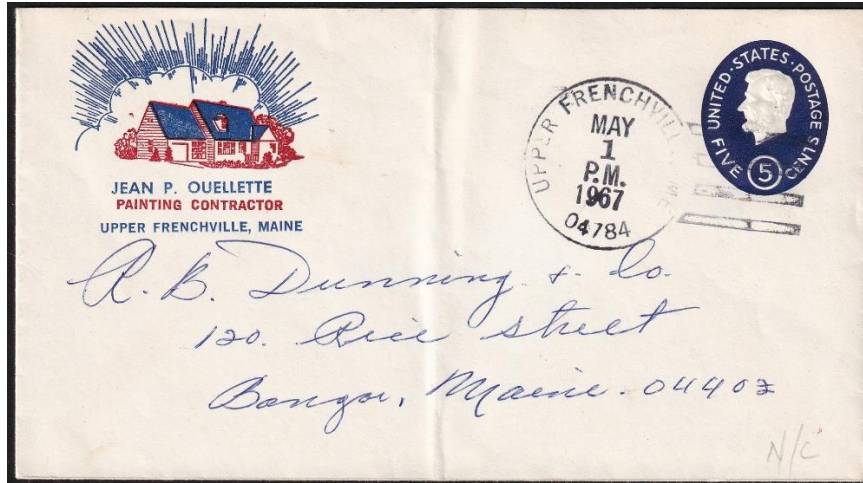 JEAN P. OUELLETTE
PAINTING CONTRACTOR
UPPER FRENCHVILLE, MAINE
UPPER FRENCHVILL ME
MAY
1
P.M.
1967
04784
UNITED·STATES·POSTAGE
FIVE 5 CENTS
R. B. Dunning & Co.
120. Rice street
Bangor, Maine. 04402
N/C